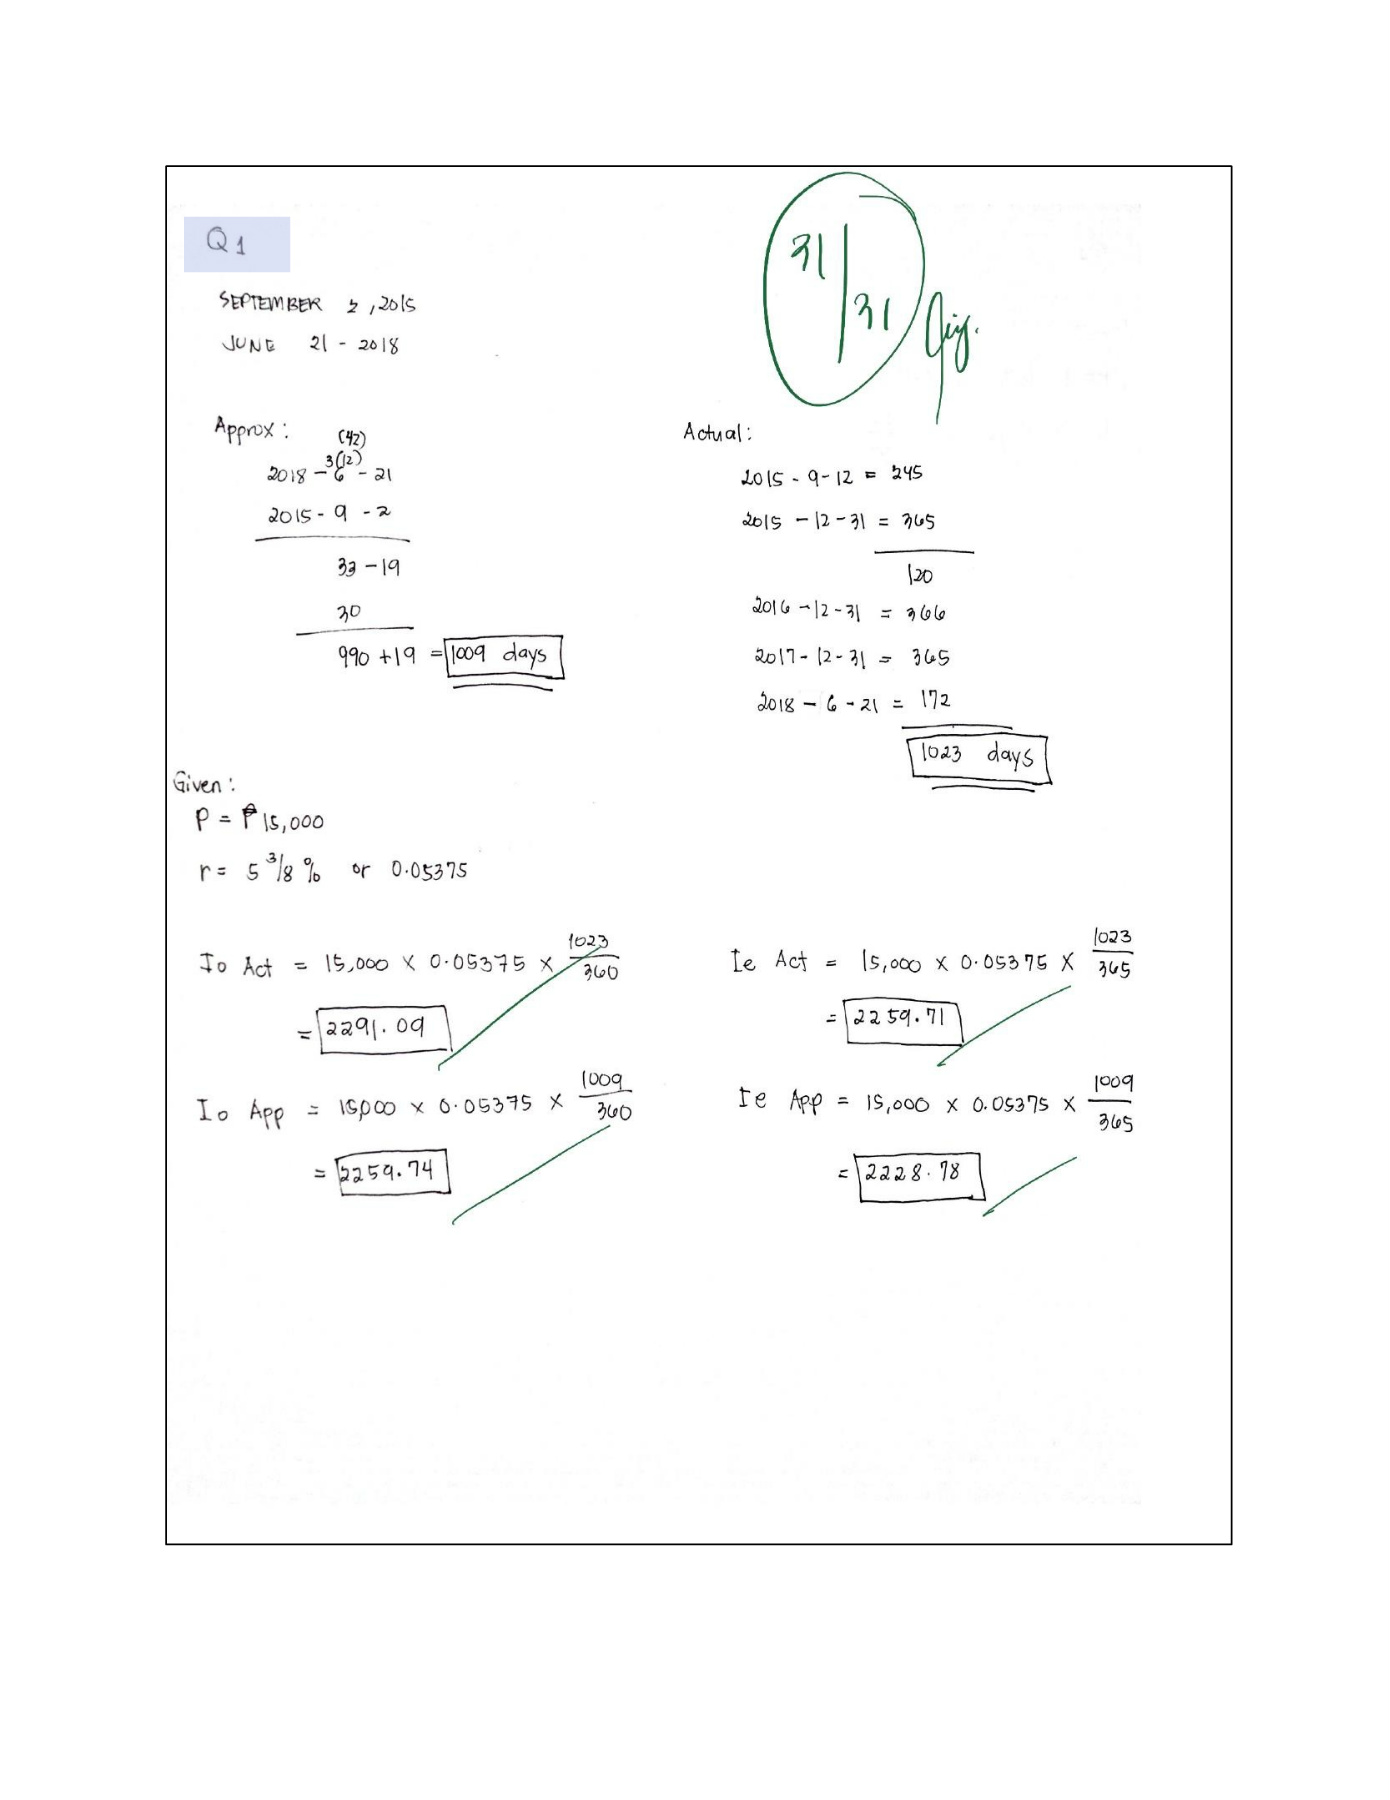 Q1
31/31
SEPTEMBER 2, 2015
JUNE 21 - 2018
Approx:
(42)
3(12)
2018 - 6 - 21
2015 - 9 - 2
33 - 19
30
990 + 19 = 1009 days
Actual:
2015 - 9 - 12 = 245
2015 - 12 - 31 = 365
120
2016 - 12 - 31 = 366
2017 - 12 - 31 = 365
2018 - 6 - 21 = 172
1023 days
Given:
P = ₱15,000
r = 5 3/8 % or 0.05375
Io Act = 15,000 × 0.05375 × 1023/360
= 2291.09
Ie Act = 15,000 × 0.05375 × 1023/365
= 2259.71
Io App = 15,000 × 0.05375 × 1009/360
= 2259.74
Ie App = 15,000 × 0.05375 × 1009/365
= 2228.78